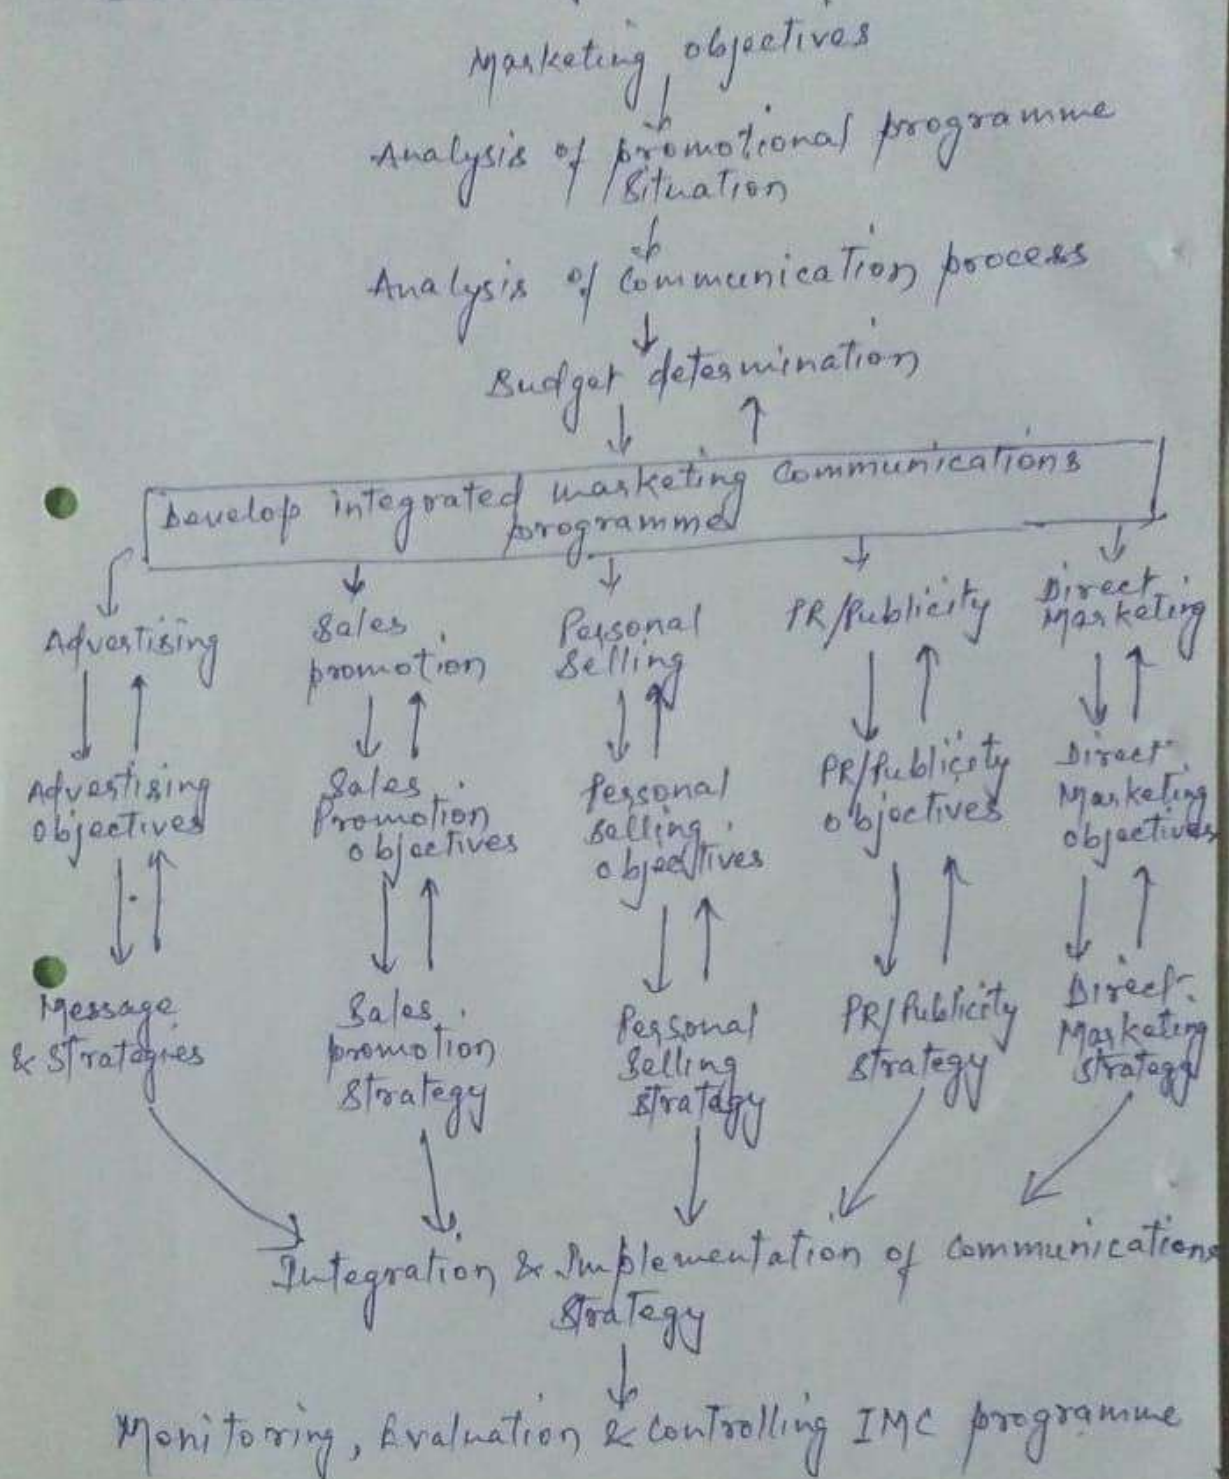 Marketing objectives
Analysis of promotional programme
Situation
Analysis of Communication process
Budget determination
Develop integrated marketing Communications
programme
Advertising
Sales
promotion
Personal
Selling
PR/Publicity
Direct
Marketing
Advertising
objectives
Sales
Promotion
objectives
Personal
Selling
objectives
PR/Publicity
objectives
Direct
Marketing
objectives
Message
& Strategies
Sales
promotion
Strategy
Personal
Selling
Strategy
PR/Publicity
Strategy
Direct
Marketing
Strategy
Integration & Implementation of Communications
Strategy
Monitoring, Evaluation & Controlling IMC programme